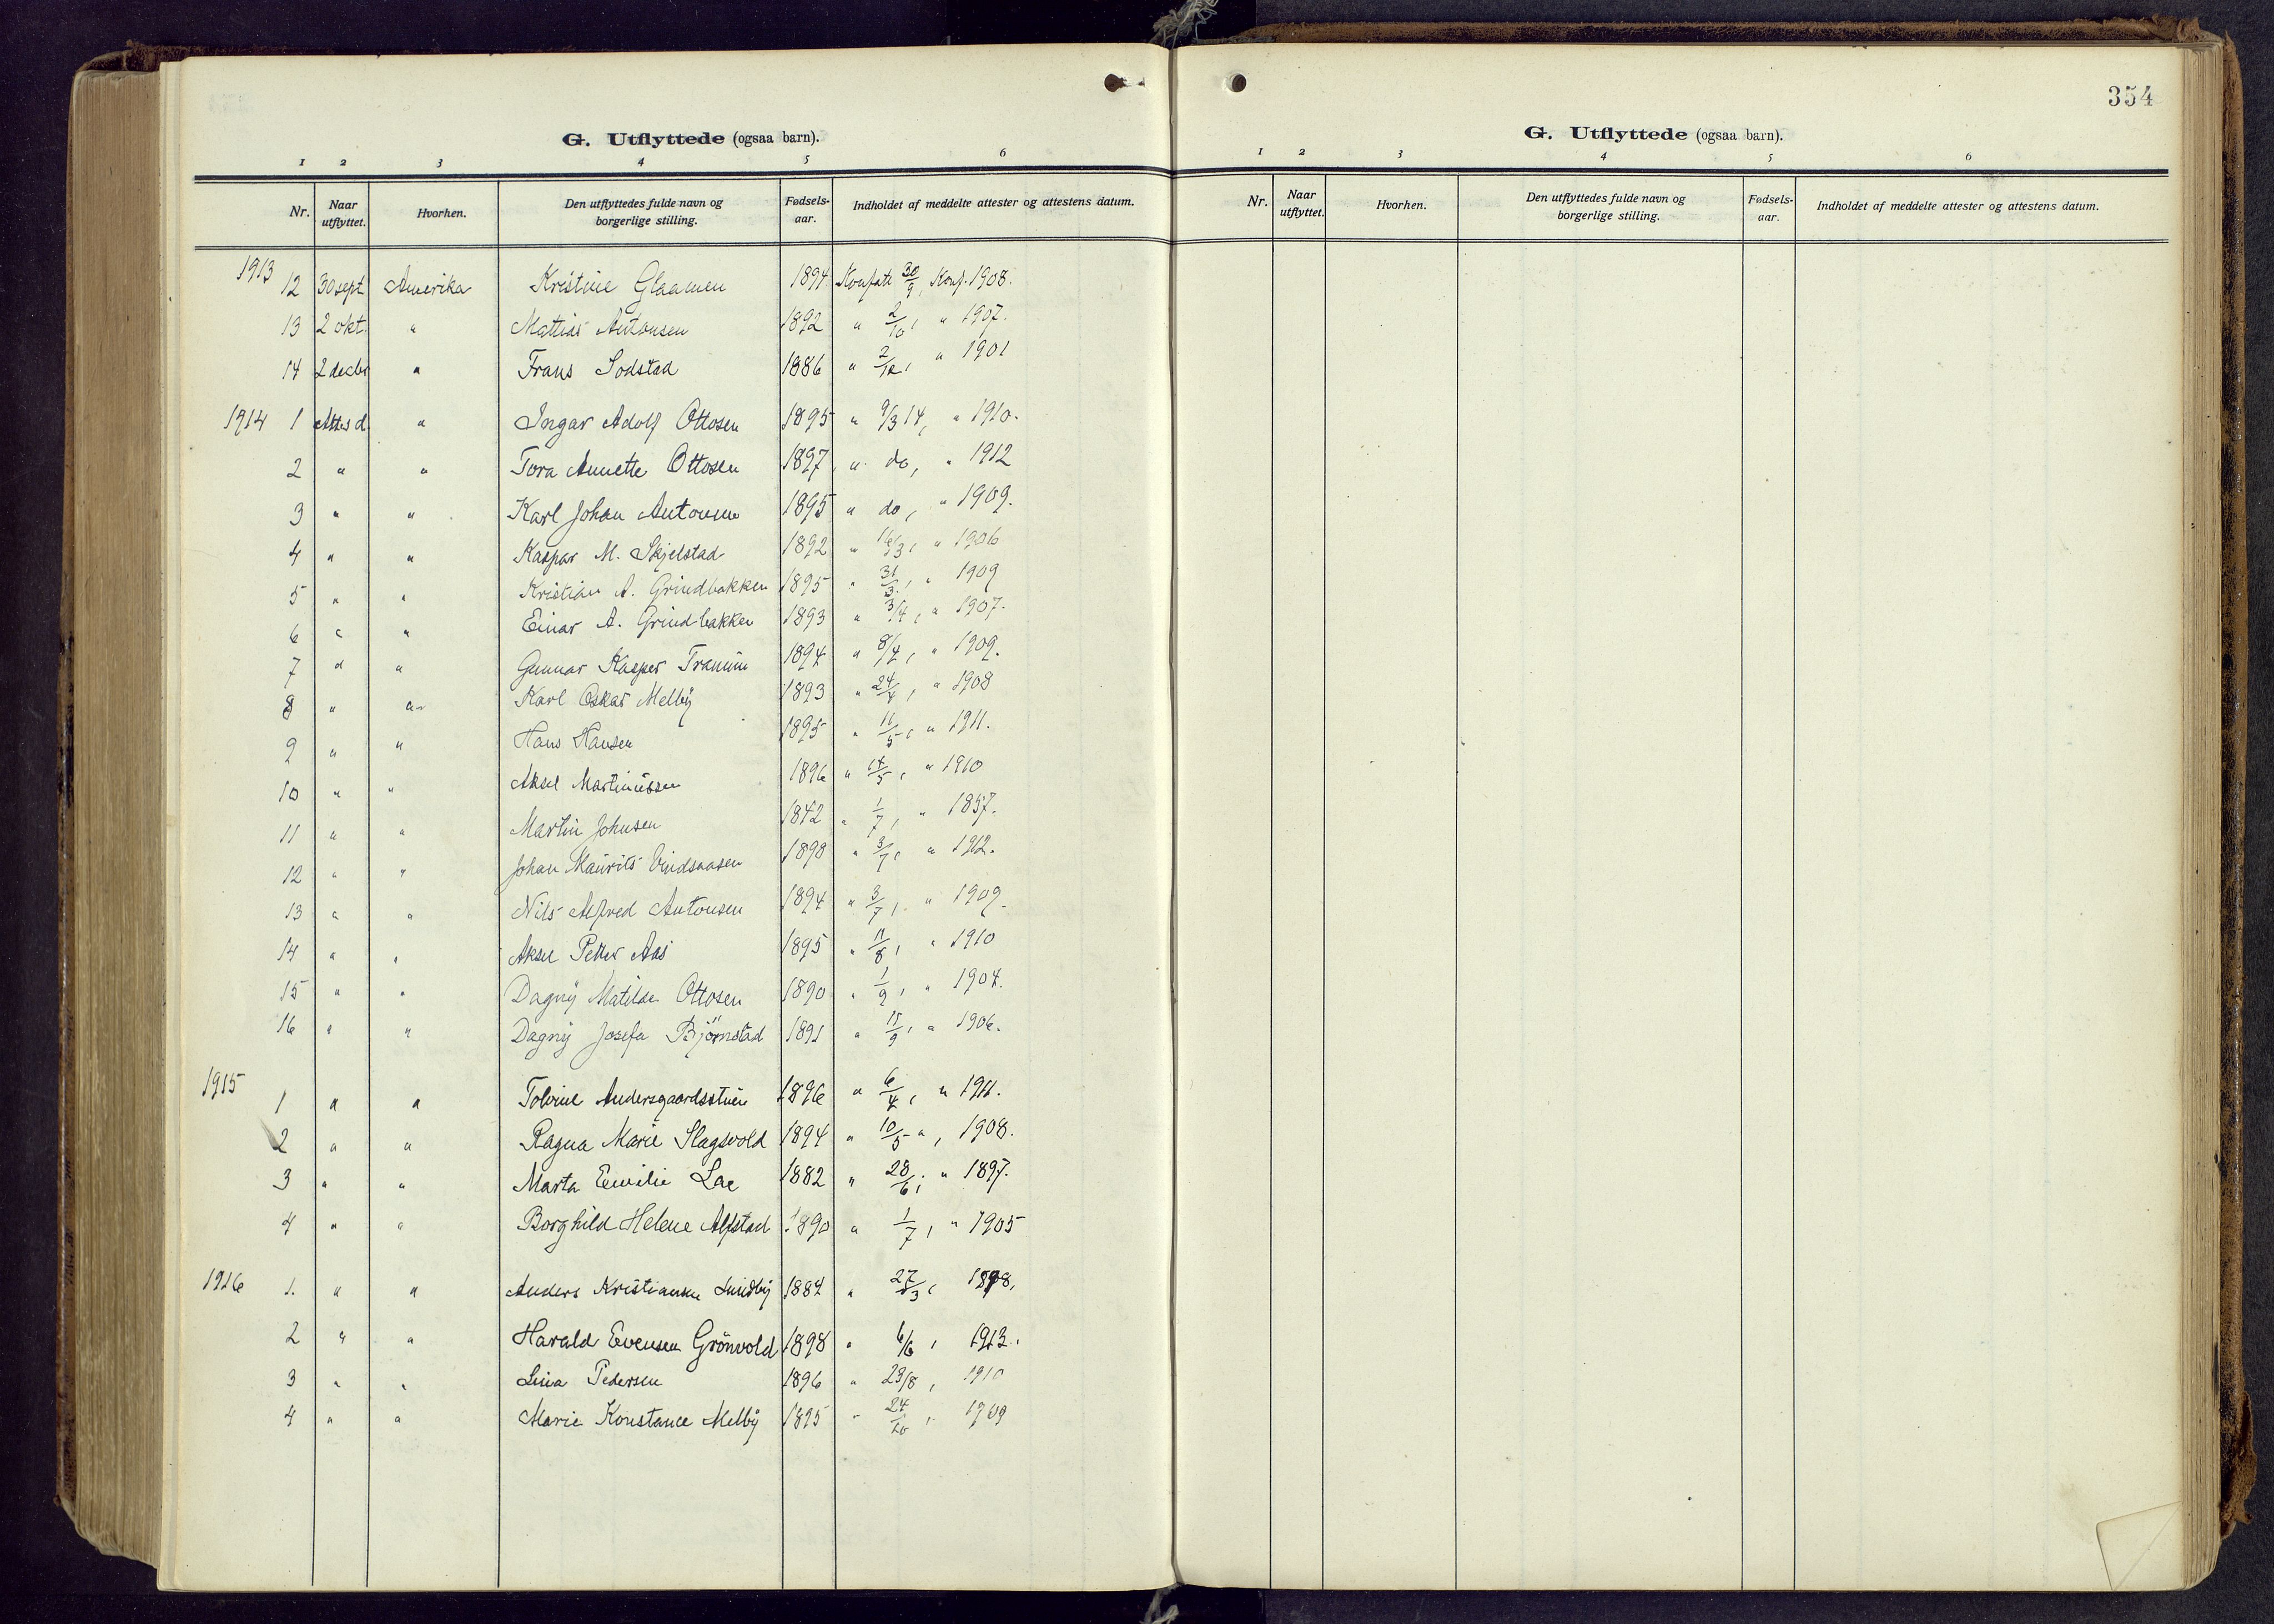 G. Utflyttede (ogsaa barn).
1 2 3 4 5 6
Nr. Naar utflyttet. Hvorhen. Den utflyttedes fulde navn og borgerlige stilling. Fødsels-aar. Indholdet af meddelte attester og attestens datum.
1913
12 30 sept Amerika Kristine Glaamen 1894 Konfatt 30/9, Konf. 1908.
13 2 okt. " Mattias Antonsen 1892 " 2/10, " 1907.
14 2 decbr " Frans Sodstad 1886 " 2/12, " 1901
1914 1 Att.s d. " Ingar Adolf Ottosen 1895 " 9/3 14, " 1910.
2 " " Tora Annette Ottosen 1897 " do, " 1912
3 " " Karl Johan Antonsen 1895 " do, " 1909.
4 " " Kaspar M. Skjelstad 1892 " 16/3, " 1906
5 " " Kristian A. Grindbakken 1895 " 31/3, " 1909
6 " " Einar A. Grindbakken 1893 " 3/4, " 1907.
7 " " Gunnar Kasper 1894 " 8/4, " 1909.
8 " " Karl Oskar Melby 1893 " 24/4, " 1908
9 " " Hans Hansen 1895 " 11/5, " 1911.
10 " " Aksel Martinussen 1896 " 14/5, " 1910
11 " " Martin Johnsen 1842 " 1/7, " 1857.
12 " " Johan Maurits 1898 " 3/7, " 1912.
13 " " Nils Alfred Antonsen 1894 " 3/7, " 1909.
14 " " Aksel Petter Aas 1895 " 11/8, " 1910
15 " " Dagny Matilde Ottosen 1890 " 1/9, " 1904.
16 " " Dagny Josefa Björnstad 1891 " 15/9, " 1906.
1915
1 " " Toline Andersgaardsstuen 1896 " 6/4, " 1911.
2 " " Ragna Marie Slagsvold 1894 " 10/5 ", 1908.
3 " " Marta Emilie Lae 1882 " 28/6, " 1897.
4 " " Borghild Helene Alfstad 1890 " 1/7, " 1905
1916 1. " " Anders Kristiansen Lundby 1884 " 27/3, 1898,
2 " " Harald Evensen Grönvold 1898 " 6/6, 1913.
3 " " Lina Pedersen 1896 " 23/8, 1910
4 " " Marie Konstance Melby 1895 " 24/10, 1909
354
G. Utflyttede (ogsaa barn).
1 2 3 4 5 6
Nr. Naar utflyttet. Hvorhen. Den utflyttedes fulde navn og borgerlige stilling. Fødsels-aar. Indholdet af meddelte attester og attestens datum.